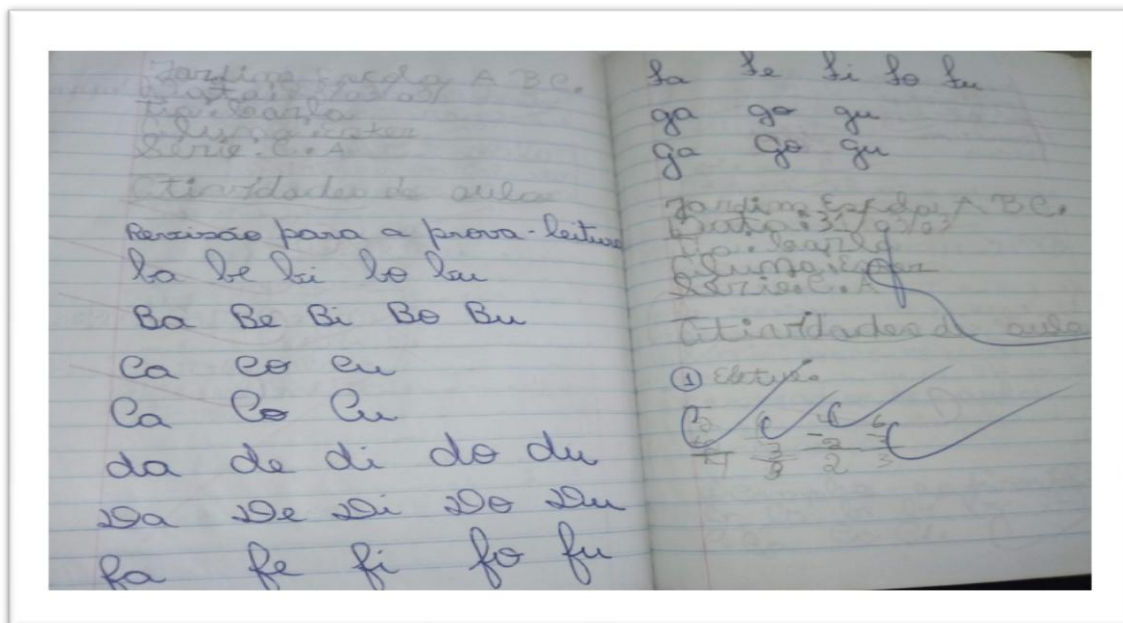 Jardim Escola A B C.
Data: 31/03/03
Tia: Carla
Aluno: Ester
Série: C. A
Atividades de aula
Revisão para a prova - leitura
ba be bi bo bu
Ba Be Bi Bo Bu
ca co cu
Ca Co Cu
da de di do du
Da De Di Do Du
fa fe fi fo fu
Fa Fe Fi Fo Fu
ga go gu
Ga Go Gu
Jardim Escola A B C.
Data: 31/03/03
Tia: Carla
Série: C. A
Atividades de aula
① Efetue.
2 3